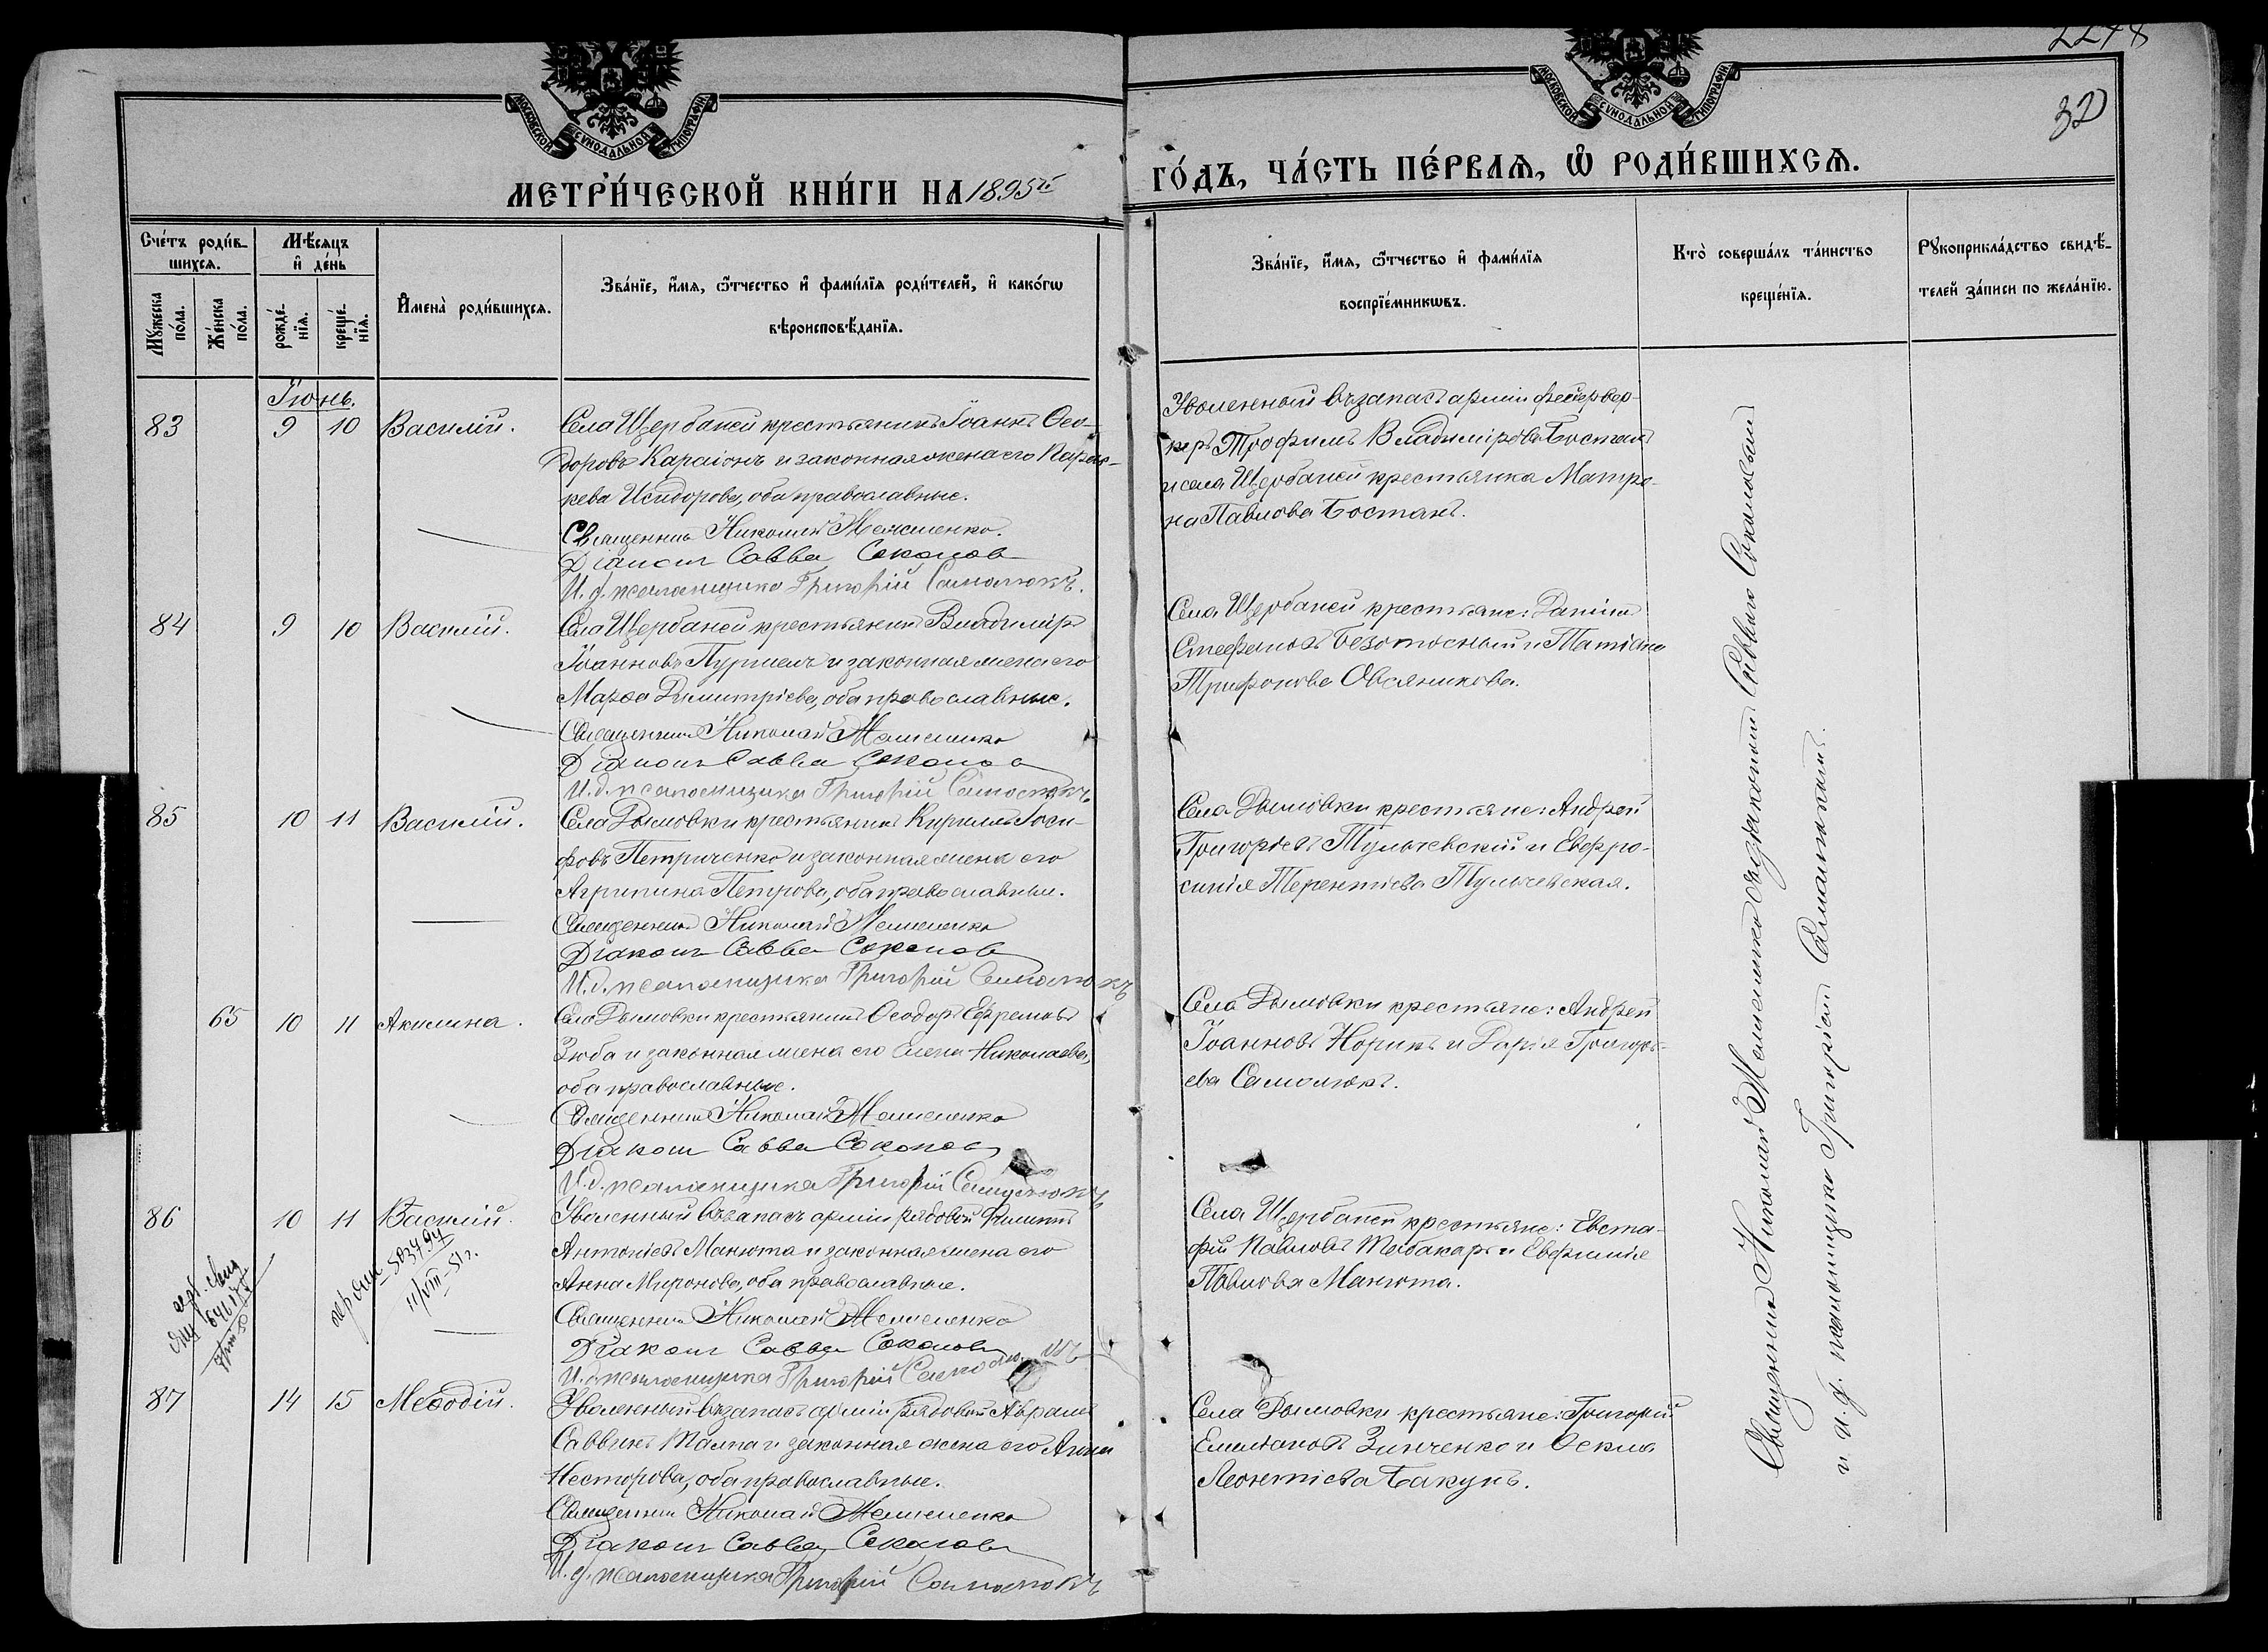 32
МОСКОВСКОЙ СѴНОДАЛЬНОЙ ТИПОГРАФІИ
МОСКОВСКОЙ СѴНОДАЛЬНОЙ ТИПОГРАФІИ
МЕТРИ́ЧЕСКОЙ КНИ́ГИ НА 1895й ГО́ДЪ, ЧА́СТЬ ПЕ́РВАѦ, Ѽ РОДИ́ВШИХСѦ.
Сче́тъ роди́в-
шихсѧ.
Мꙋжеска по́ла.
Же́нска по́ла.
Мѣ́сѧцъ
и҆ де́нь
рожде́-
нїѧ.
креще́-
нїѧ.
И҆мена̀ роди́вшихсѧ.
Зва́нїе, и҆́мѧ, ѻ҆́тчество и҆ фами́лїѧ роди́телей, и҆ како́гѡ
вѣроисповѣ́данїѧ.
Зва́нїе, и҆́мѧ, ѻ҆́тчество и҆ фами́лїѧ
воспрїе́мникѡвъ.
Кто̀ соверша́лъ та́инство
креще́нїѧ.
Рꙋкоприкла́дство свидѣ́-
телей за́писи по жела́нїю.
Іюнь.
83 9 10 Василій. Села Щербаней крестьянинъ Іоаннъ Ѳео-
доровъ Караіонъ и законная жена его Парас-
кева Исидорова, оба православные.
Священникъ Николай Мельниенко.
Діаконъ Савва Соколов
И. д. псаломщика Григорій Самолюкъ.
Уволенный въ запасъ арміи фейервер-
керъ Трофимъ Владиміровъ Бостанъ
и села Щербаней крестьянка Матро-
на Павлова Бостанъ.
84 9 10 Василій. Села Щербаней крестьянинъ Владиміръ
Іоанновъ Пуршелъ и законная жена его
Марѳа Димитріева, оба православные.
Священникъ Николай
Діаконъ Савва Соколов
И. д. псаломщика Григорій Самолюкъ
Села Щербаней крестьяне: Даніилъ
Стефановъ Безотосный и Татіана
Трифонова Овсяникова.
85 10 11 Василій. Села Дымовки крестьянинъ Кириллъ Іоси-
фовъ Петриченко и законная жена его
Агрипина Петрова, оба православные.
Священникъ Николай
Діаконъ Савва Соколов
И. д. псаломщика Григорій Самолюкъ
Села Дымовки крестьяне: Андрей
Григоріевъ Тульчевскій и Евфро-
синія Терентіева Тульчевская.
65 10 11 Акилина. Села Дымовки крестьянинъ Ѳеодоръ Ефремовъ
Зюба и законная жена его Елена Николаева,
оба православные.
Священникъ Николай
Діаконъ Савва Соколов
И. д. псаломщика Григорій Самолюкъ
Села Дымовки крестьяне: Андрей
Іоанновъ Норикъ и Дарія Григорь-
ева Самолюкъ.
86 10 11 Василій. Уволенный въ запасъ арміи рядовой Филиппъ
Антоніевъ Манюта и законная жена его
Анна Миронова, оба православные.
Священникъ Николай
Діаконъ Савва Соколов
И. д. псаломщика Григорій Самолюкъ
11/VIII-51г.
Села Щербаней крестьяне: Евста-
фій Павловъ Табакаръ и Евфимія
Павлова Манюта.
87 14 15 Меѳодій. Уволенный въ запасъ арміи рядовой Аврамъ
Саввинъ Талпа и законная жена его Анна
Несторова, оба православные.
Священникъ Николай
Діаконъ Савва Соколов
И. д. псаломщика Григорій Самолюкъ
Села Дымовки крестьяне: Григорій
Емиліановъ Зинченко и Ѳекла
Леонтіева Бакунъ.
Священникъ Николай съ діакономъ Саввою Соколовымъ
и и. д. псаломщика Григоріемъ Самолюкомъ.